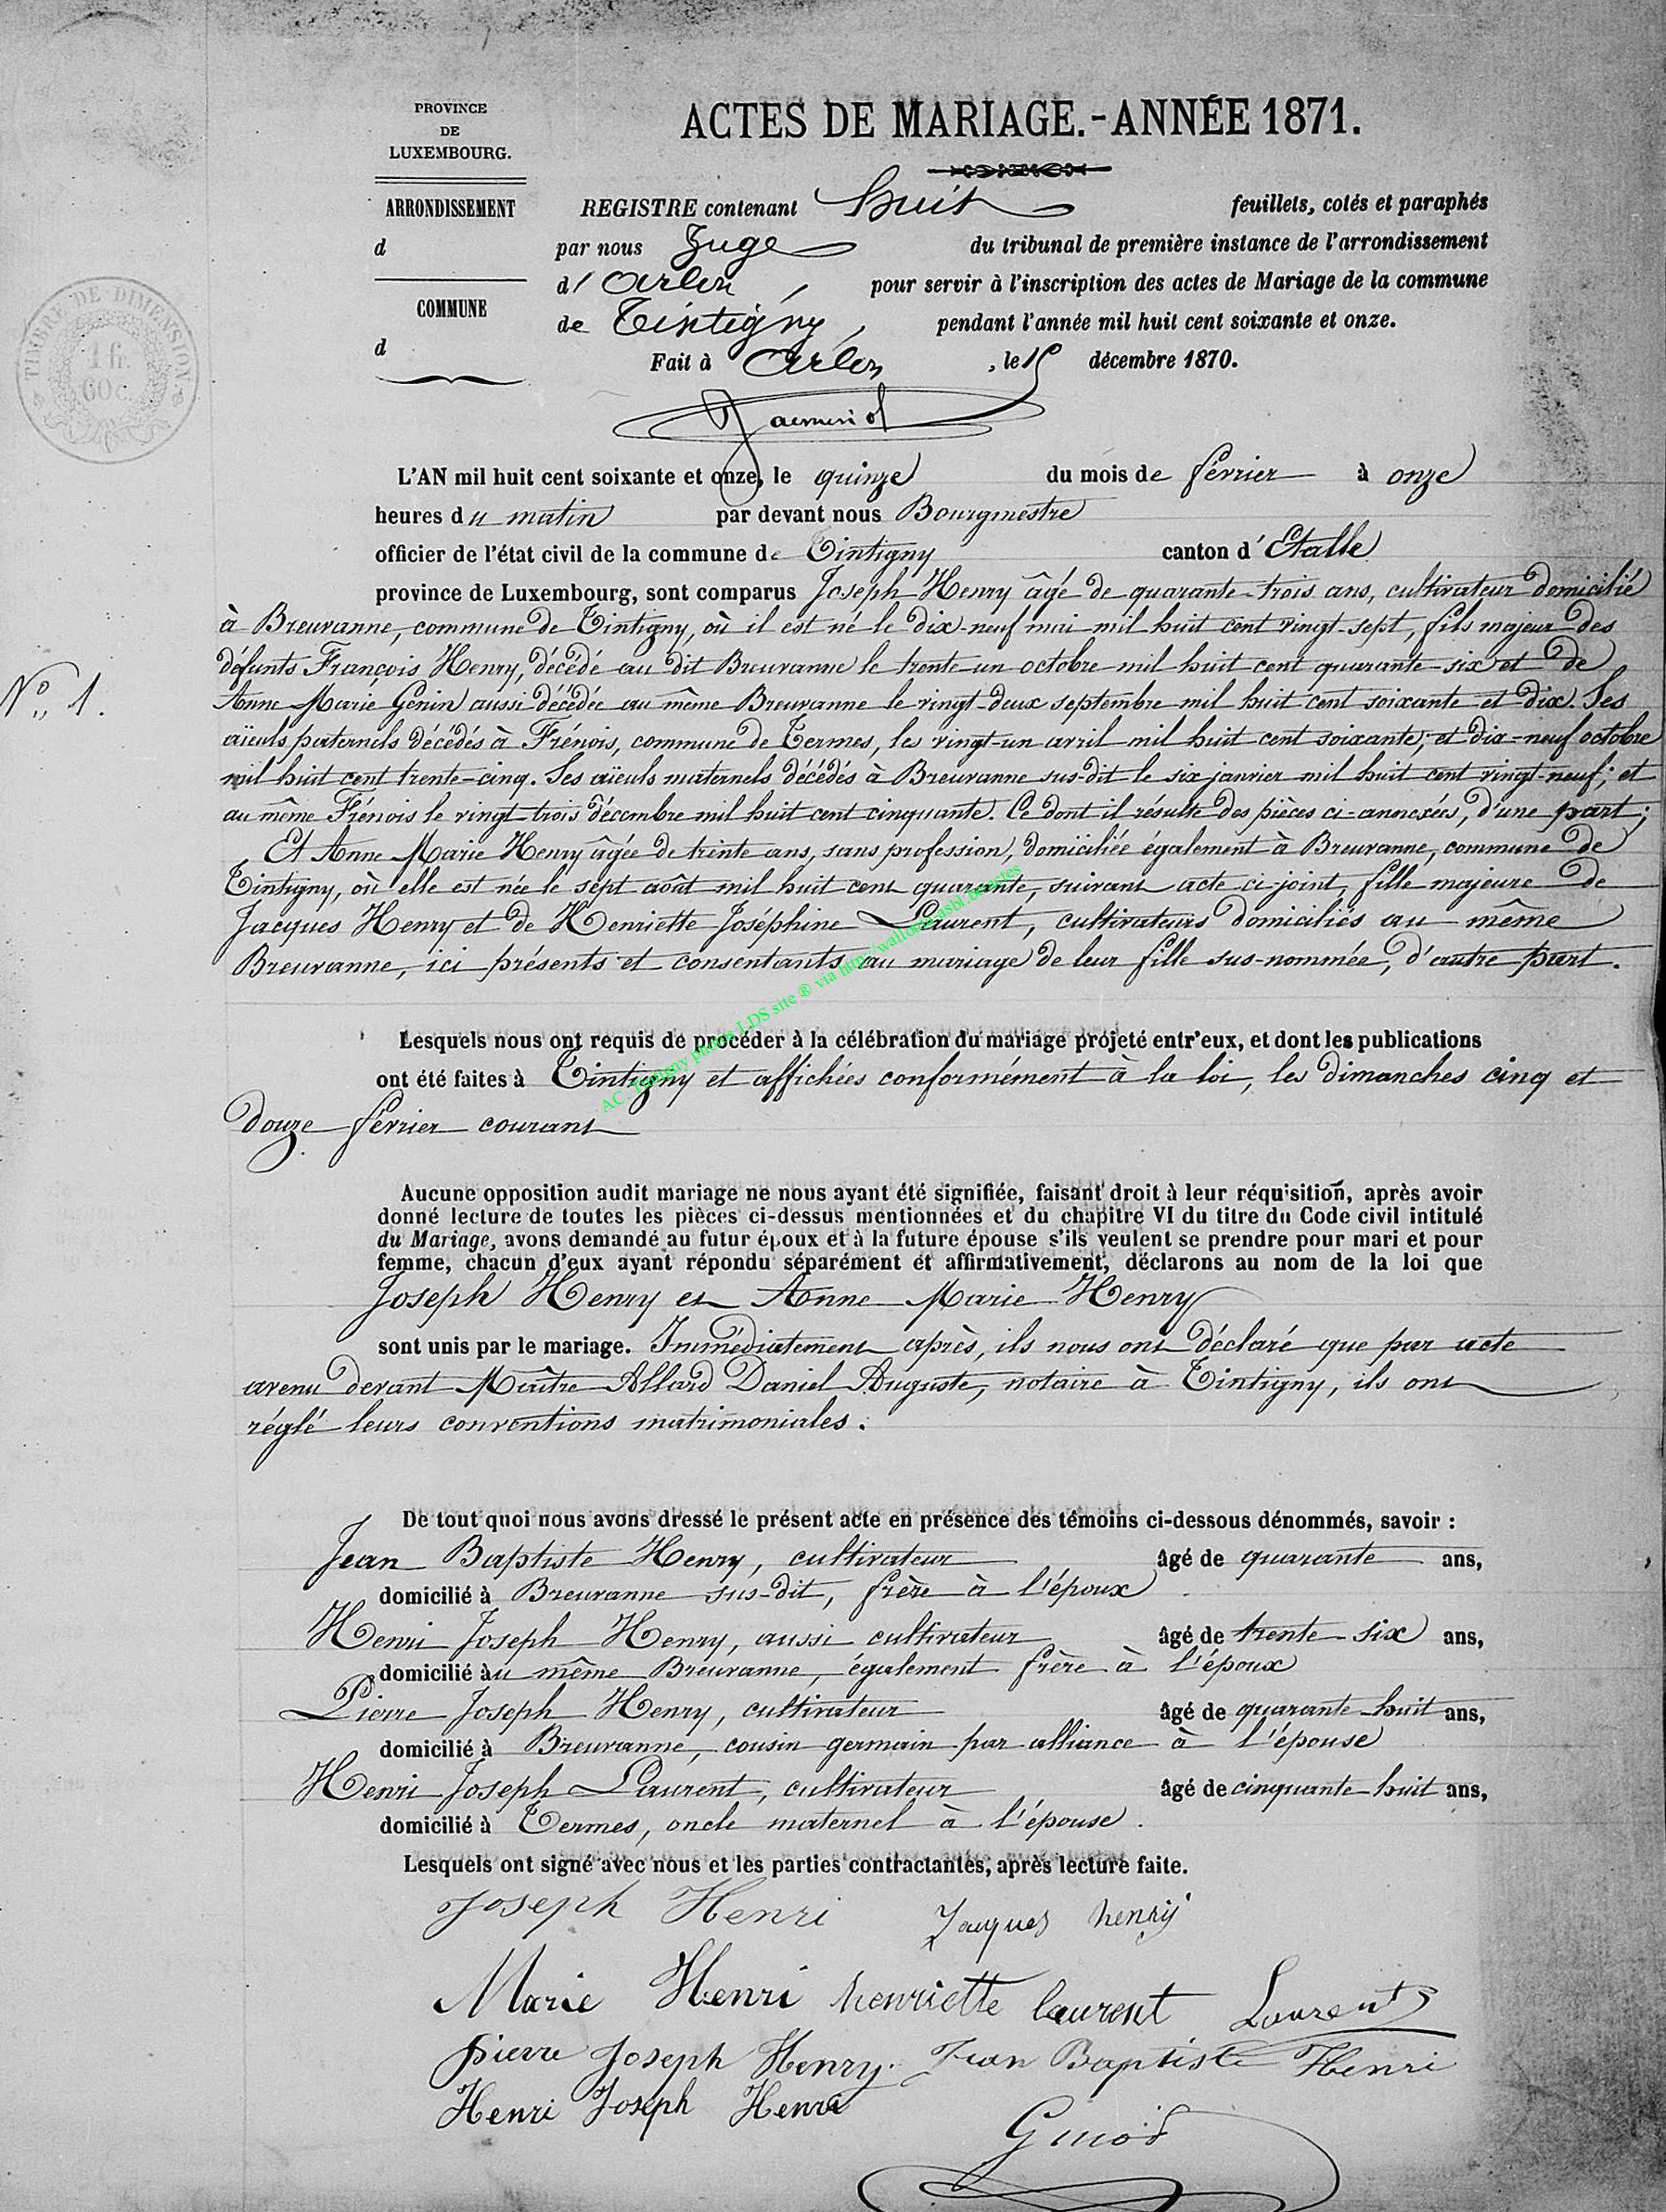 PROVINCE
DE
LUXEMBOURG.
ACTES DE MARIAGE.-ANNÉE 1871.
ARRONDISSEMENT
d
COMMUNE
d
TIMBRE DE DIMENSION
1 fr.
60 c.
REGISTRE contenant huit feuillets, cotés et paraphés
par nous Juge du tribunal de première instance de l'arrondissement
d' Arlon, pour servir à l'inscription des actes de Mariage de la commune
de Tintigny, pendant l'année mil huit cent soixante et onze.
Fait à Arlon, le 15 décembre 1870.
L'AN mil huit cent soixante et onze, le quinze du mois de février à onze
heures du matin par devant nous Bourgmestre
officier de l'état civil de la commune de Tintigny canton d' Etalle
province de Luxembourg, sont comparus Joseph Henry âgé de quarante-trois ans, cultivateur domicilié
à Breuvanne, commune de Tintigny, où il est né le dix-neuf mai mil huit cent vingt-sept, fils majeur des
défunts François Henry, décédé au dit Breuvanne le trente un octobre mil huit cent quarante-six et de
N° 1.
Anne Marie Génin aussi décédée au même Breuvanne le vingt-deux septembre mil huit cent soixante et dix. Ses
aïeuls paternels décédés à Frénois, commune de Termes, les vingt-un avril mil huit cent soixante, et dix-neuf octobre
mil huit cent trente-cinq. Ses aïeuls maternels décédés à Breuvanne sus-dit le six janvier mil huit cent vingt-neuf; et
au même Frénois le vingt trois décembre mil huit cent cinquante. Ce dont il résulte des pièces ci-annexées, d'une part;
Et Anne Marie Henry âgée de trente ans, sans profession, domiciliée également à Breuvanne, commune de
Tintigny, où elle est née le sept août mil huit cent quarante, suivant acte ci-joint, fille majeure de
Jacques Henry et de Henriette Joséphine Laurent, cultivateurs domiciliés au même
Breuvanne, ici présents et consentants au mariage de leur fille sus-nommée, d'autre part.
AC. Tintigny photos LDS site ® via http://wallonia.asbl.be/actes
Lesquels nous ont requis de procéder à la célébration du mariage projeté entr'eux, et dont les publications
ont été faites à Tintigny et affichées conformément à la loi, les dimanches cinq et
douze février courant
Aucune opposition audit mariage ne nous ayant été signifiée, faisant droit à leur réquisition, après avoir
donné lecture de toutes les pièces ci-dessus mentionnées et du chapitre VI du titre du Code civil intitulé
du Mariage, avons demandé au futur époux et à la future épouse s'ils veulent se prendre pour mari et pour
femme, chacun d'eux ayant répondu séparément et affirmativement, déclarons au nom de la loi que
Joseph Henry et Anne Marie Henry
sont unis par le mariage. Immédiatement après, ils nous ont déclaré que par acte
avenu devant Maître Allard Daniel Auguste, notaire à Tintigny, ils ont
réglé leurs conventions matrimoniales.
De tout quoi nous avons dressé le présent acte en présence des témoins ci-dessous dénommés, savoir :
Jean Baptiste Henry, cultivateur âgé de quarante ans,
domicilié à Breuvanne sus-dit, frère à l'époux
Henri Joseph Henry, aussi cultivateur âgé de trente-six ans,
domicilié au même Breuvanne, également frère à l'époux
Pierre Joseph Henry, cultivateur âgé de quarante huit ans,
domicilié à Breuvanne, cousin germain par alliance à l'épouse
Henri Joseph Laurent, cultivateur âgé de cinquante huit ans,
domicilié à Termes, oncle maternel à l'épouse.
Lesquels ont signé avec nous et les parties contractantes, après lecture faite.
Joseph Henri Jacques henrij
Marie Henri henriette laurent Laurent
pierre Joseph Henry. Jean Baptiste Henri
Henri Joseph Henri